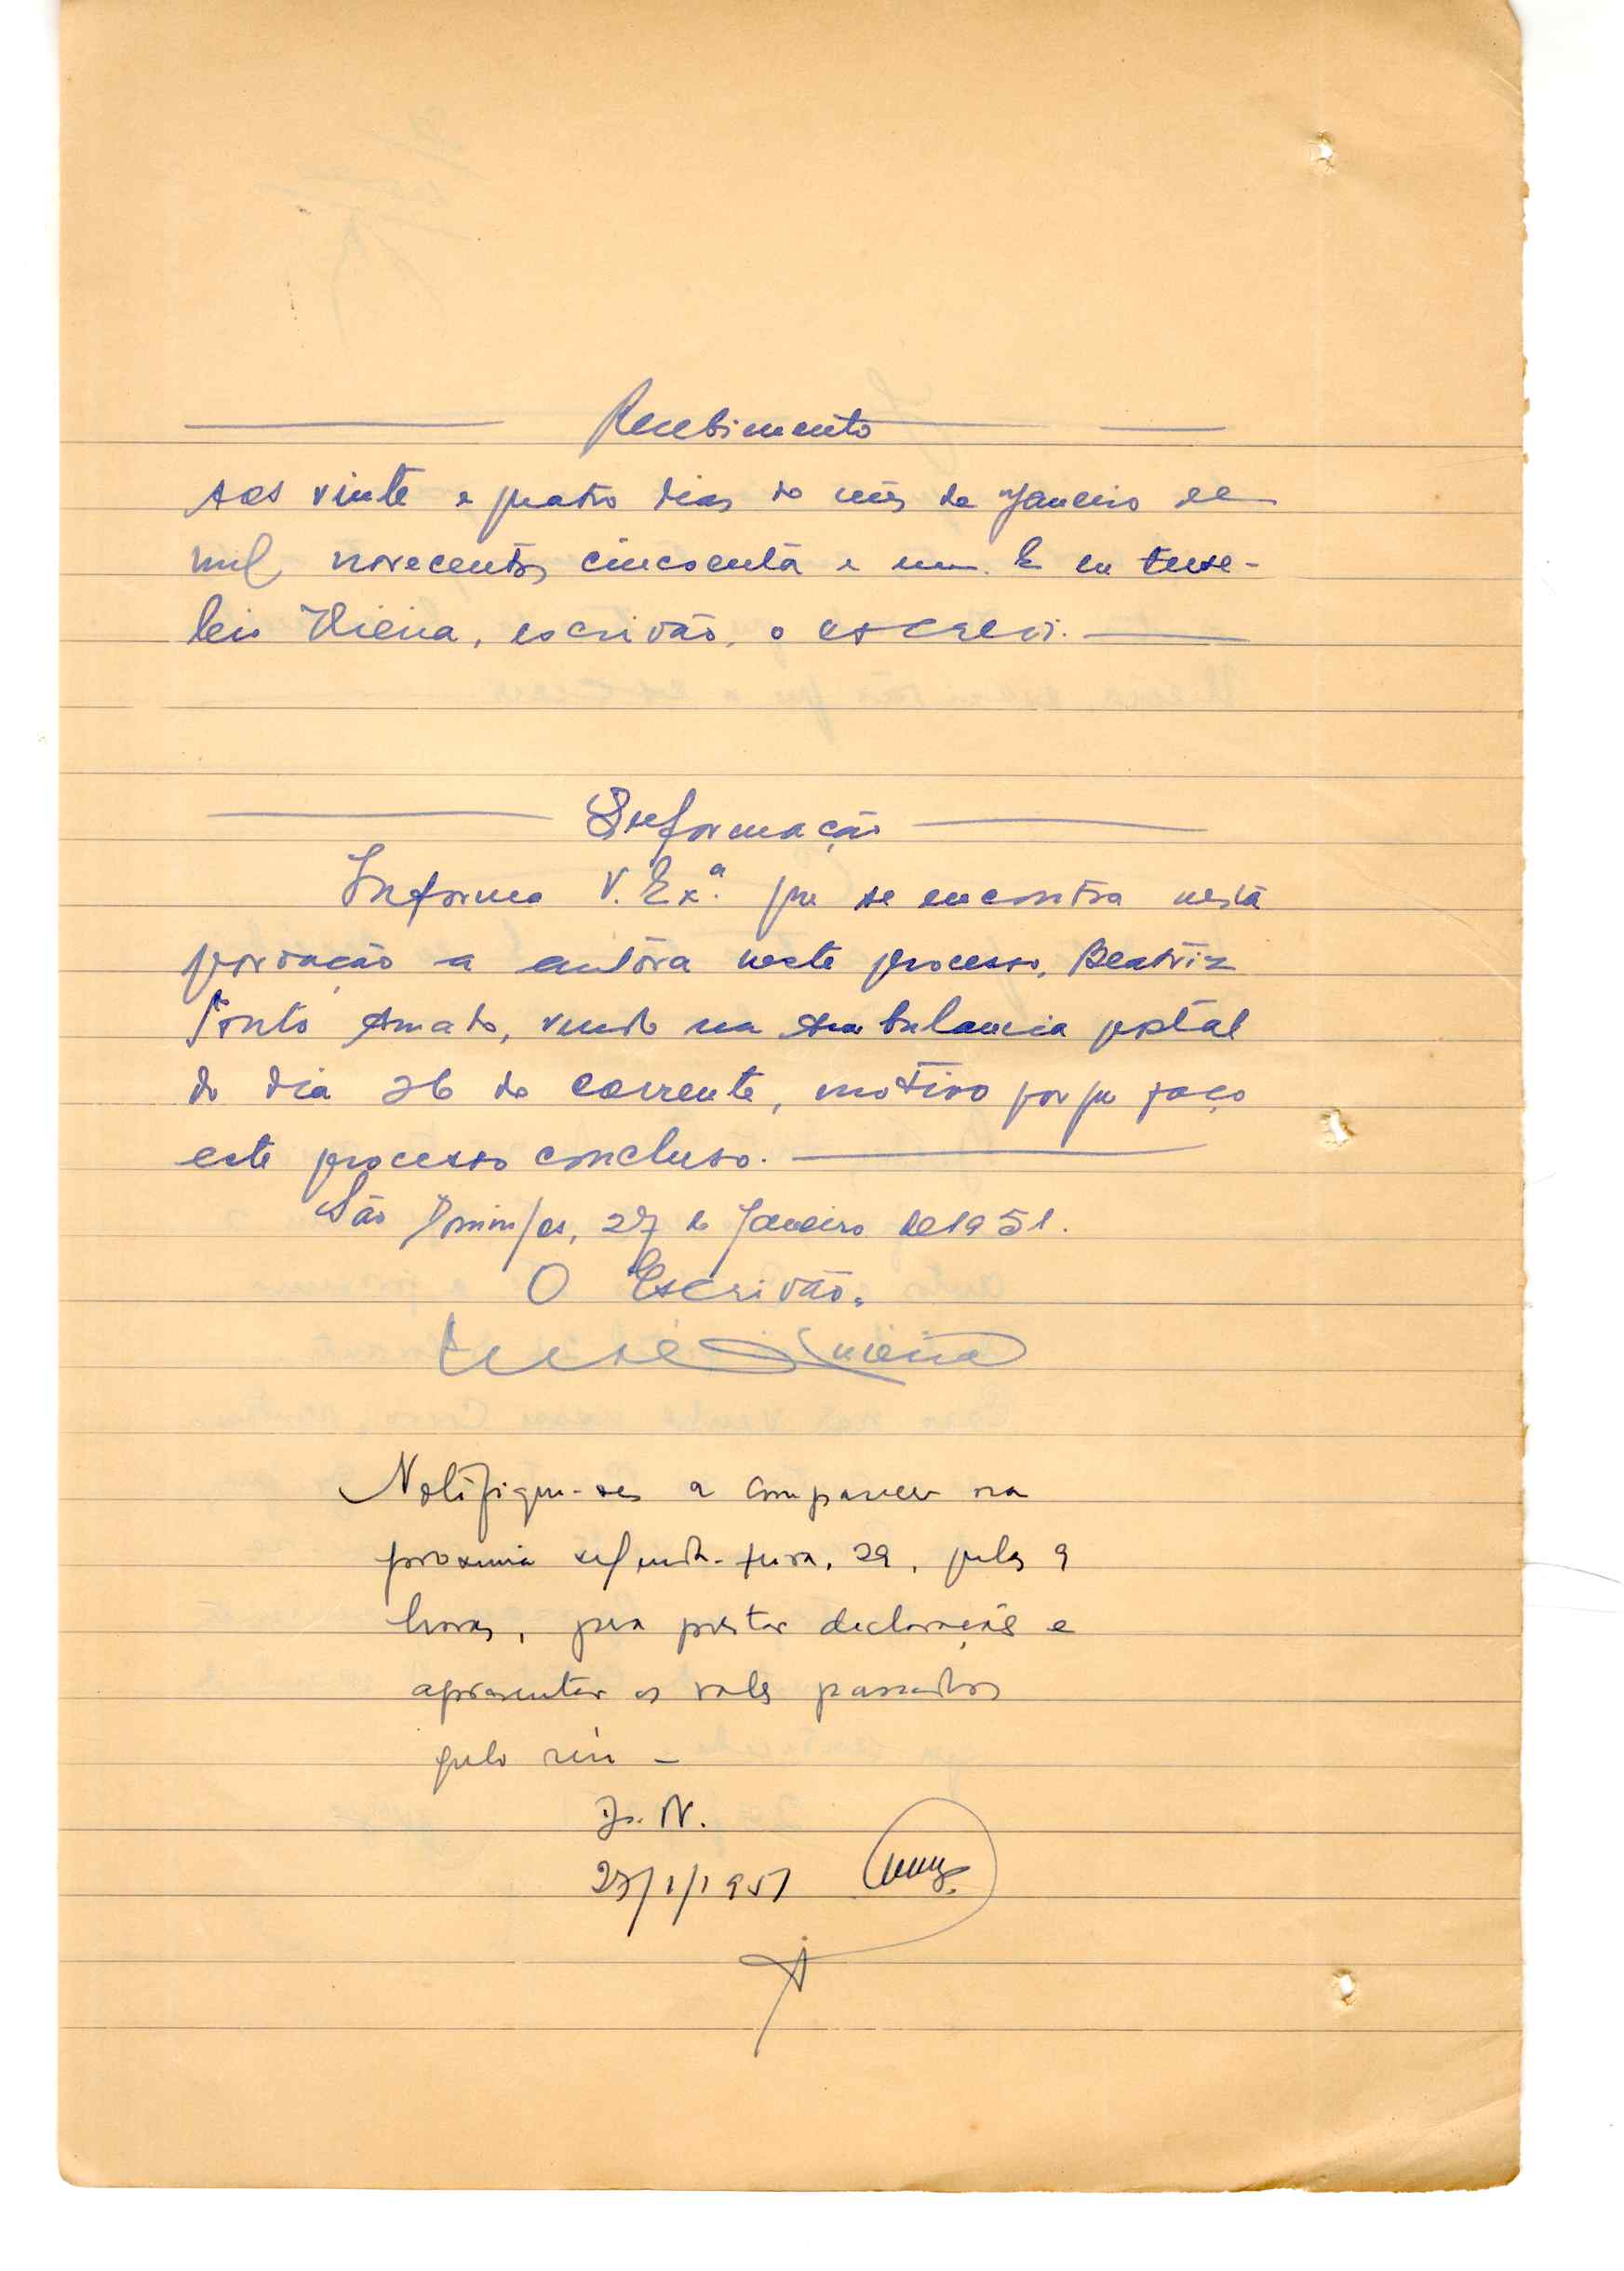 Recebimento
Aos vinte e quatro dias do mês de Janeiro de
mil novecentos cincoenta e um. E eu
Vieira, escrivão, o escrevi.
Informação
Informo V. Exª. que se encontra nesta
povoação a autôra neste processo, Beatriz
Amado, vindo na Ambulancia postal
do dia 26 do corrente, motivo porque faço
este processo concluso.
São Domingos, 27 de Janeiro de 1951.
O Escrivão,
Notifique-se a comparecer na
proxima segunda-feira, 29, pelas 9
horas, para prestar declarações e
apresentar os vales passados
pelo réu -
27/1/1951